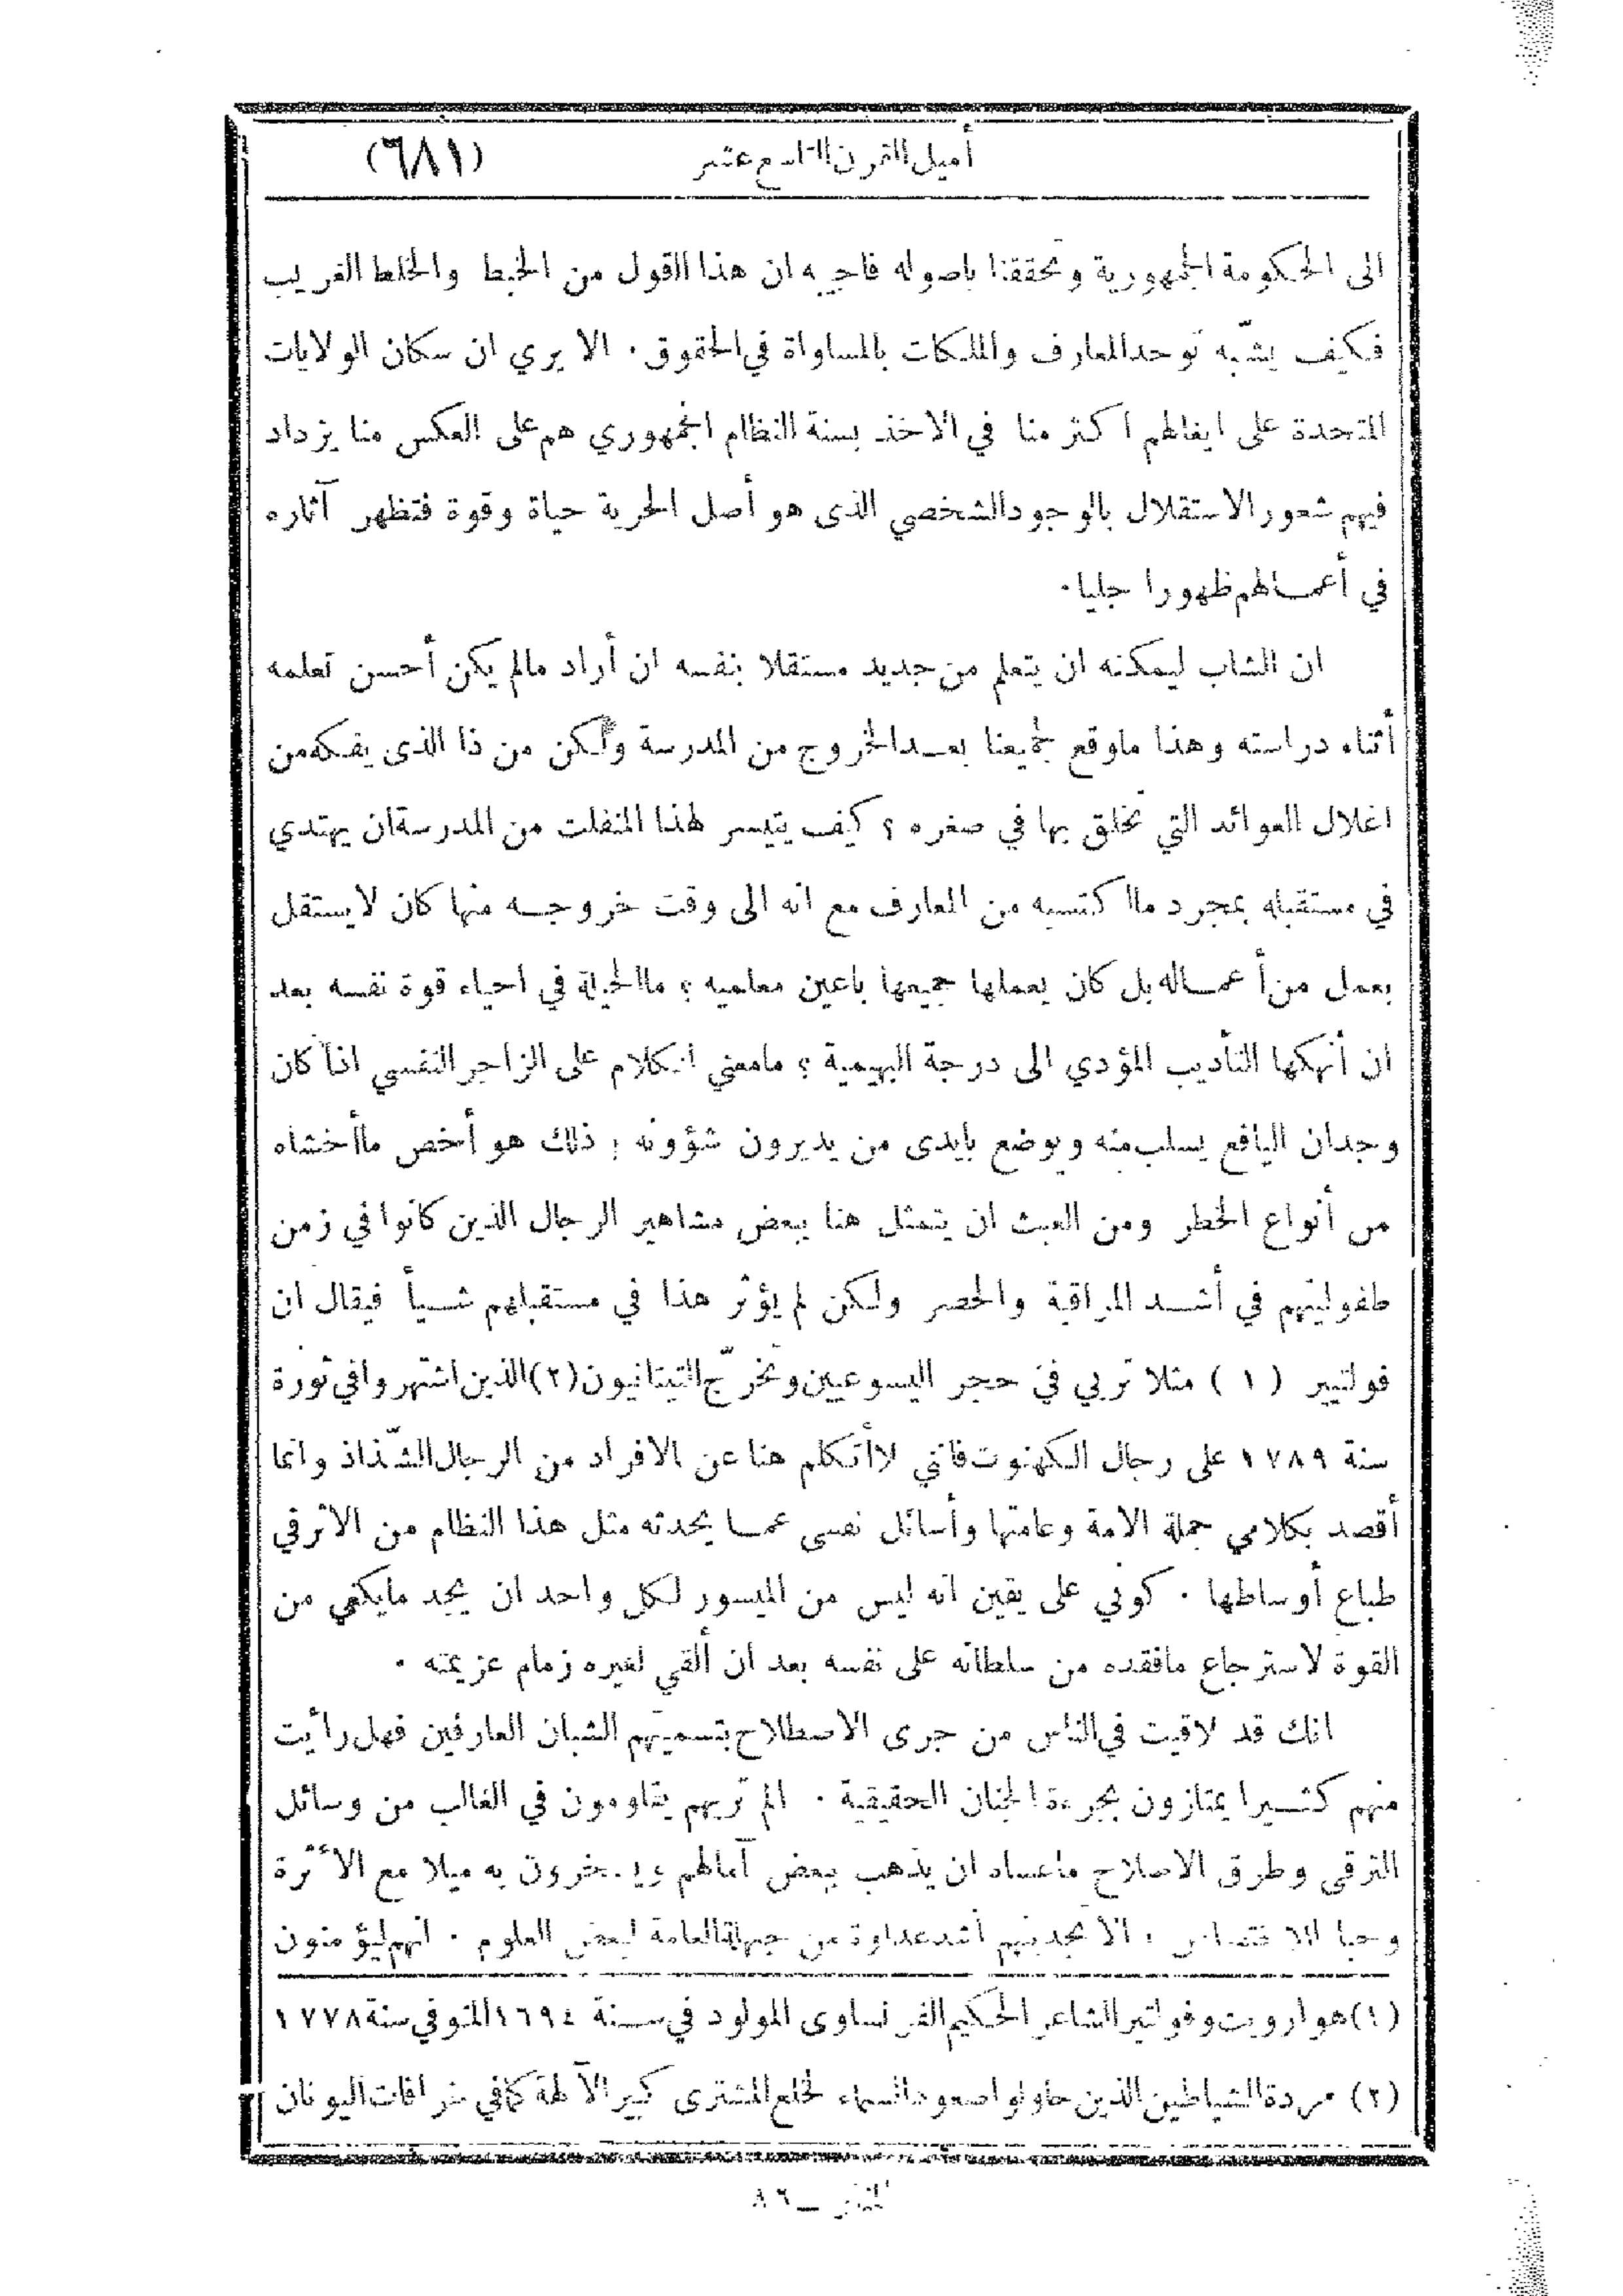 أميل القرن التاسع عشر (٦٨١)
الى الحكومة الجمهورية وتحققنا باصوله فاجيبه ان هذا القول من الخبط والخلط الغريب
فكيف يشبّه توحد المعارف والملكات بالمساواة في الحقوق. الا يري ان سكان الولايات
المتحدة على ايغالهم اكثر منا في الاخذ بسنة النظام الجمهوري هم على العكس منا يزداد
فيهم شعور الاستقلال بالوجود الشخصي الذى هو أصل الحرية حياة وقوة فتظهر آثاره
في أعمالهم ظهورا جليا.
ان الشاب ليمكنه ان يتعلم من جديد مستقلا بنفسه ان أراد مالم يكن أحسن تعلمه
أثناء دراسته وهذا ماوقع لجميعنا بعد الخروج من المدرسة ولكن من ذا الذى يفكه من
اغلال العوائد التي تخلق بها في صغره ؟ كيف يتيسر لهذا المنفلت من المدرسة ان يهتدي
في مستقبله بمجرد ما اكتسبه من المعارف مع انه الى وقت خروجه منها كان لايستقل
بعمل من أعماله بل كان يعملها جميعها باعين معلميه ؟ ما الحيلة في احياء قوة نفسه بعد
ان أنهكها التأديب المؤدي الى درجة البهيمية ؟ مامعني الكلام على الزاجر النفسي اذا كان
وجدان اليافع يسلب منه ويوضع بايدى من يديرون شؤونه ؛ ذلك هو أخص ماأخشاه
من أنواع الخطر ومن العبث ان يتمثل هنا ببعض مشاهير الرجال الذين كانوا في زمن
طفوليتهم في أشد المراقبة والحصر ولكن لم يؤثر هذا في مستقبلهم شيأ فيقال ان
فولتيير (١) مثلا تربي في حجر اليسوعيين وتخرّج التيتانيون (٢) الذين اشتهروا في ثورة
سنة ١٧٨٩ على رجال الكهنوت فانني لاأتكلم هنا عن الافراد من الرجال الشذّاذ وانما
أقصد بكلامي جملة الامة وعامتها وأسائل نفسى عما يحدثه مثل هذا النظام من الاثر في
طباع أوساطها . كوني على يقين انه ليس من الميسور لكل واحد ان يجد مايكفي من
القوة لاسترجاع مافقده من سلطانه على نفسه بعد ان ألقي لغيره زمام عزيمته .
انك قد لاقيت في الناس من جرى الاصطلاح بتسميتهم الشبان العارفين فهل رأيت
منهم كثيرا يمتازون بجرءة الجنان الحقيقية . الم تريهم يقاومون في الغالب من وسائل
الترقى وطرق الاصلاح ماعساه ان يذهب ببعض آمالهم ميلا مع الأثرة
وحبا الاختصاص ، الا تجدينهم أشد عداوة من جهلة العامة لبعض العلوم . انهم ليؤمنون
(١) هو ارويت وفولتير الشاعر الحكيم الفرنساوى المولود في سنة ١٦٩٤ المتوفي سنة ١٧٧٨
(٢) مردة الشياطين الذين حاولوا صعود السماء لخلع المشترى كبير الآلهة كما في خرافات اليونان
المنار — ٨٦